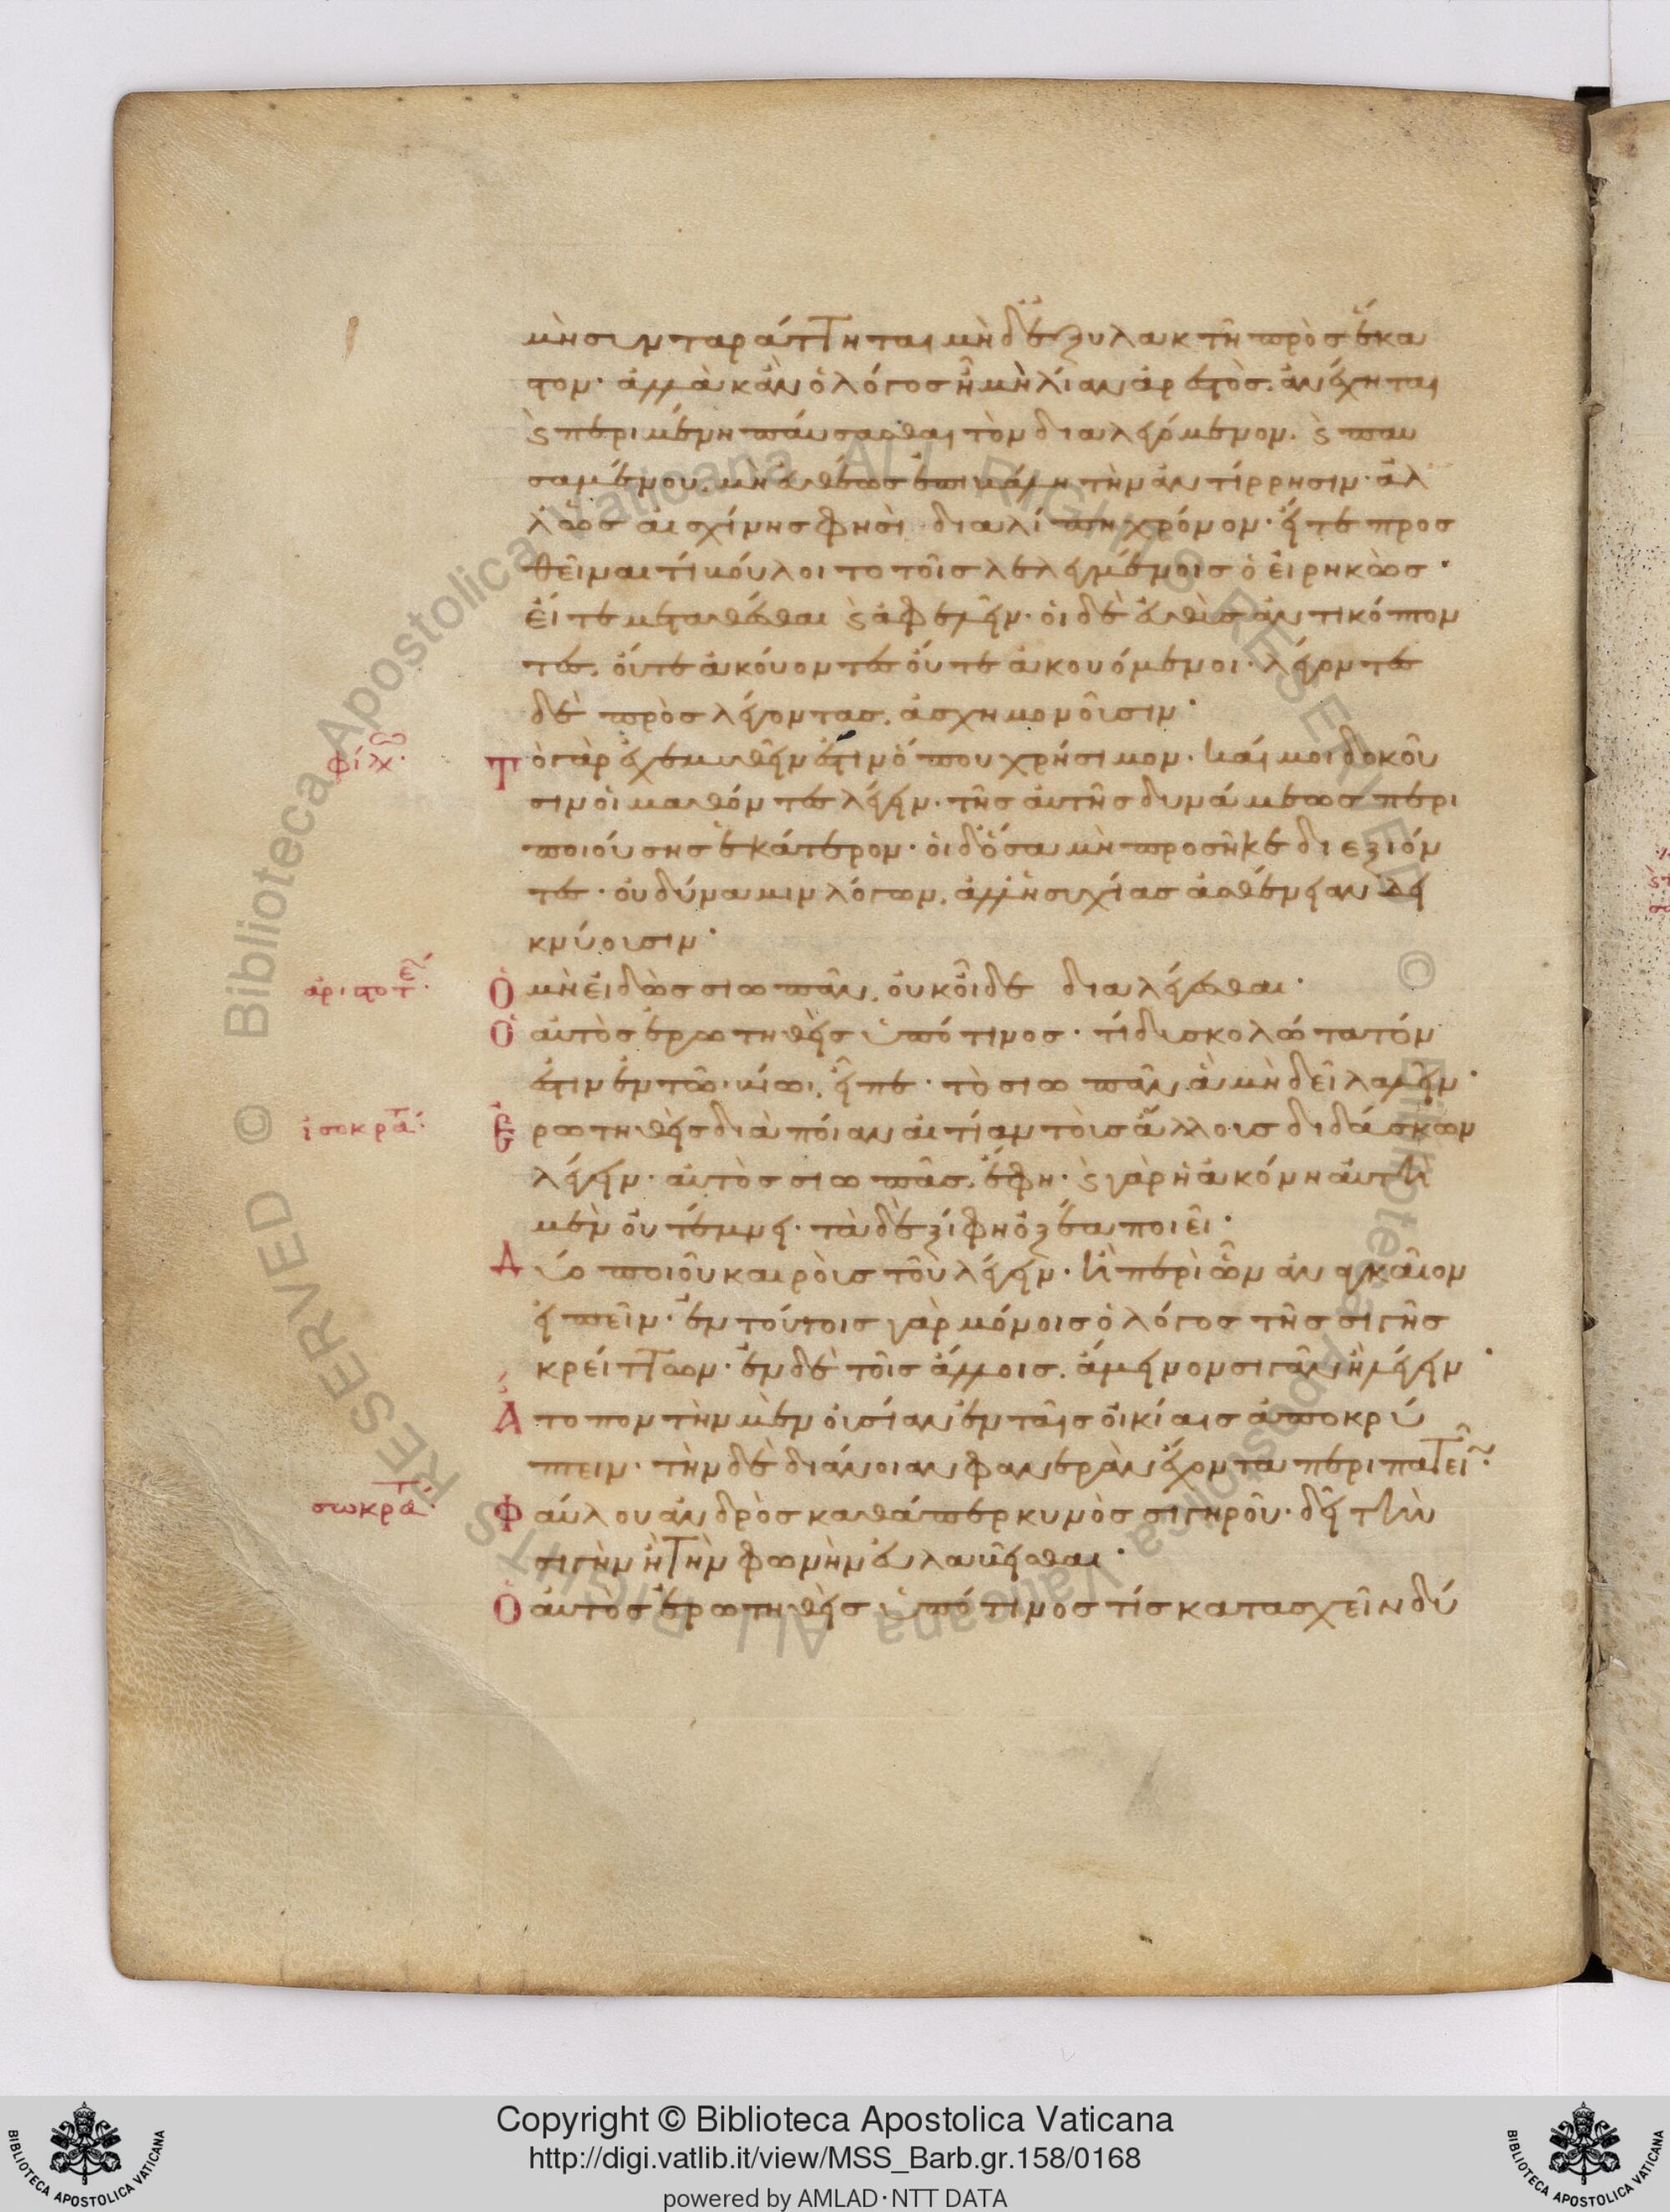 μὴ συνταράττηται μηδ' ἐξυλακτῆ πρὸς ἕκα
στον· ἀλλὰ κἂν ὁ λόγος ἢ μὴ λίαν ἀρεστὸς. ἀνέχηται
ϗ περιμένη παύσασθαι τὸν διαλεγόμενον. ϗ παυ
σαμένου. μὴ εὐθέως ἐπιβάλη τὴν ἀντίρρησιν· ἀλ
λ' ὡς αἰσχίνης φησὶ διαλίπη χρόνον· εἴτε προσ
θεῖναι τί βούλοιτο τοῖς λελεγμένοις ὁ εἰρηκὼς·
εἴτε μεταθέσθαι ϗ ἀφελεῖν· οἱ δὲ εὐθὺς ἀντικόπτον
τες. οὔτε ἀκούοντες οὔτε ἀκουόμενοι· λέγοντες
δὲ πρὸς λέγοντας. ἀσχημονοῦσιν·
φίλω·
Τὸ γὰρ ἐχεμυθεῖν ἔστιν ὅπου χρήσιμον· καί μοι δοκοῦ
σιν οἱ μαθόντες λέγειν· τῆς αὐτῆς δυνάμεως περι
ποιούσης ἑκάτερον· οἱ δ' ὅσα μὴ προσῆκε διεξιόν
τες· οὐ δύναμιν λόγων. ἀλλ' ἡσυχίας ἀσθένειαν δει
κνύουσιν·
ἀριστοτέλ·
Ὁ μὴ εἰδὼς σιωπᾶν. οὐκ οἶδε διαλέγεσθαι·
Ὁ αὐτὸς ἐρωτηθεὶς ὑπό τινος· τί δυσκολώτατόν
ἐστιν ἐν τῶ βίω. εἶπε· τὸ σιωπᾶν ἃ μὴ δεῖ λαλεῖν·
ἰσοκρά·
Ἐρωτηθεὶς διὰ ποίαν αἰτίαν τοὺς ἄλλους διδάσκων
λέγειν· αὐτὸς σιωπᾶς. ἔφη· ϗ γὰρ ἡ ἀκόνη αὐτὴ
μὲν οὐ τέμνει· τὰ δὲ ξίφη ὀξέα ποιεῖ·
Δύο ποιοῦ καιροὺς τοῦ λέγειν· ἢ περὶ ὧν ἀναγκαῖον
εἰπεῖν· ἐν τούτοις γὰρ μόνοις ὁ λόγος τῆς σιγῆς
κρείττων· ἐν δὲ τοῖς ἄλλοις. ἄμεινον σιγᾶν ἢ λέγειν·
Ἄτοπον τὴν μὲν οὐσίαν ἐν ταῖς οἰκίαις ἀποκρύ
πτειν· τὴν δὲ διάνοιαν φανερὰν ἔχοντα περιπατεῖν·
σωκρά·
Φαύλου ἀνδρὸς καθάπερ κυνὸς σιγηροῦ· δεῖ τὴν
σιγὴν ἢ τὴν φωνὴν εὐλαβεῖσθαι·
Ὁ αὐτὸς ἐρωτηθεὶς ὑπό τινος τίς κατασχεῖν δύ
Copyright © Biblioteca Apostolica Vaticana
http://digi.vatlib.it/view/MSS_Barb.gr.158/0168
powered by AMLAD·NTT DATA